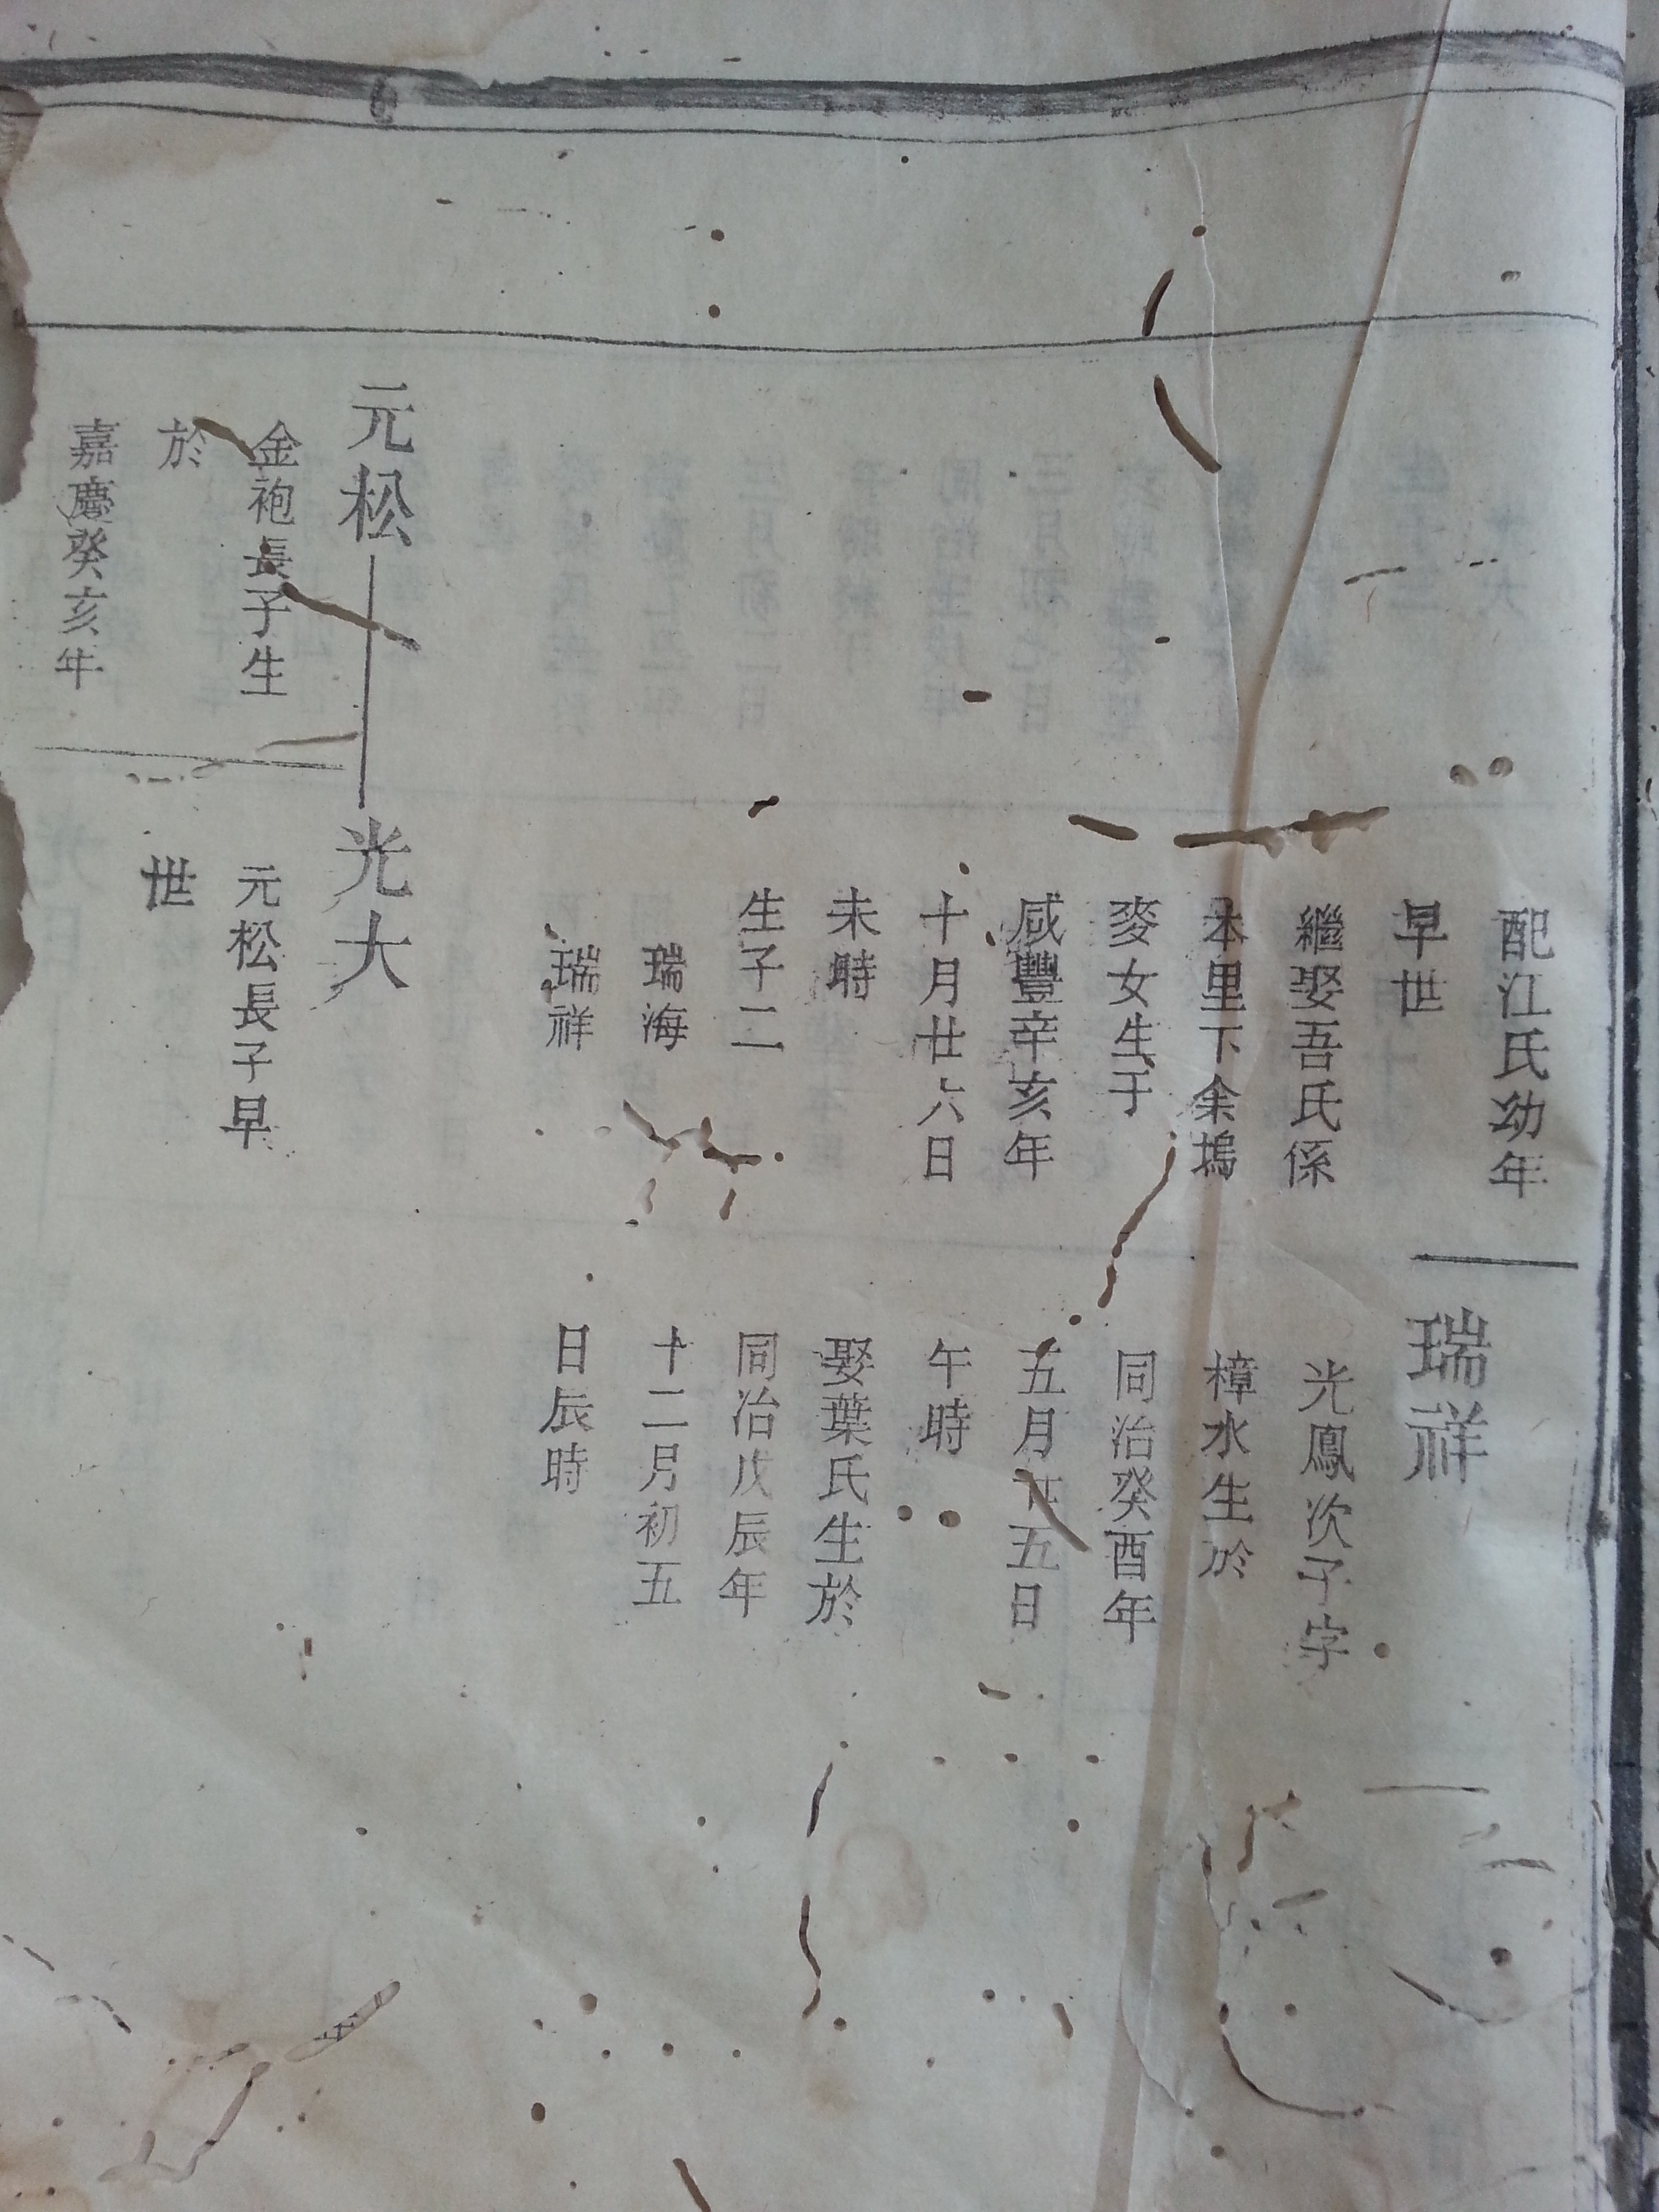 配江氏幼年
早世
繼娶吾氏係
本里下余塢
麥女生于
咸豐辛亥年
十月廿六日
未時
生子二
瑞海
瑞祥
瑞祥
光鳳次子字
樟水生於
同治癸酉年
五月廿五日
午時
娶葉氏生於
同治戊辰年
十二月初五
日辰時
元松
金袍長子生
於
嘉慶癸亥年
光大
元松長子早
世